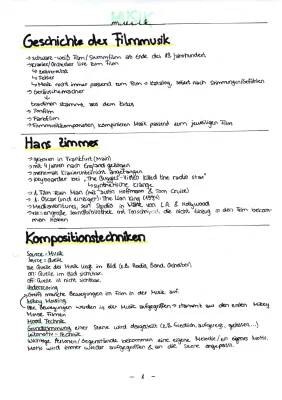 MUSIK
musik
Geschichte der Filmmusik
→ schwarz-weiß Film/Stummfilm ab Ende des 19. Jahrhundert
→ Klavier/Orchester live zum Film
→ Musik nicht immer passend zum Film → Katalog, sortiert nach Stimmungen/Gefühlen
→ Geräuschemacher
↓
brachten Stimme aus dem Extra
→ Tonfilm
→ Farbfilm
→ Filmmusikkomponisten, komponieren Musik passend zum jeweiligen Film
Hans Zimmer
→ geboren in Frankfurt (Main)
→ mit Jahren nach England gezogen
→ mehrmals Klavierunterricht angefangen
→ Keyboarder bei „The Buggles" - Video killed the radio star"
↳ synthetische Klänge
→ 1. Film Rain Man (mit Dustin Hoffmann & Tom Cruise)
→ 1. Oscar (und einziger): The Lion King (1994)
→ Medienvorlesung, sein Studio in L.A. & Hollywood
→ riesengroße Soundbibliothek mit die nicht einzig in den Film bekommen können
Kompositionstechniken
Source = Musik
Source = Quelle
Die Quelle der Musik liegt im Bild (z.B. Radio, Band, Orchester)
on: Quelle im Bild sichtbar.
off: Quelle ist nicht sichtbar.
Underscoring
Greift nach die Bewegungen im Film in der Musik auf.
Mikey Mousing
Die Bewegungen werden in der Musik aufgegriffen → stammt aus den ersten Mikey
Mouse Filmen
Mood Technik
Grundstimmung einer Szene wird dargestellt (z.B. friedlich, aufgeregt, gelassen...)
Leitmotiv-Technik
Wichtige Personen/Gegenstände bekommen eine eigene Melodie/ein eigenes Motiv.
Motiv wird immer wieder aufgegriffen & an die Szene angepasst.